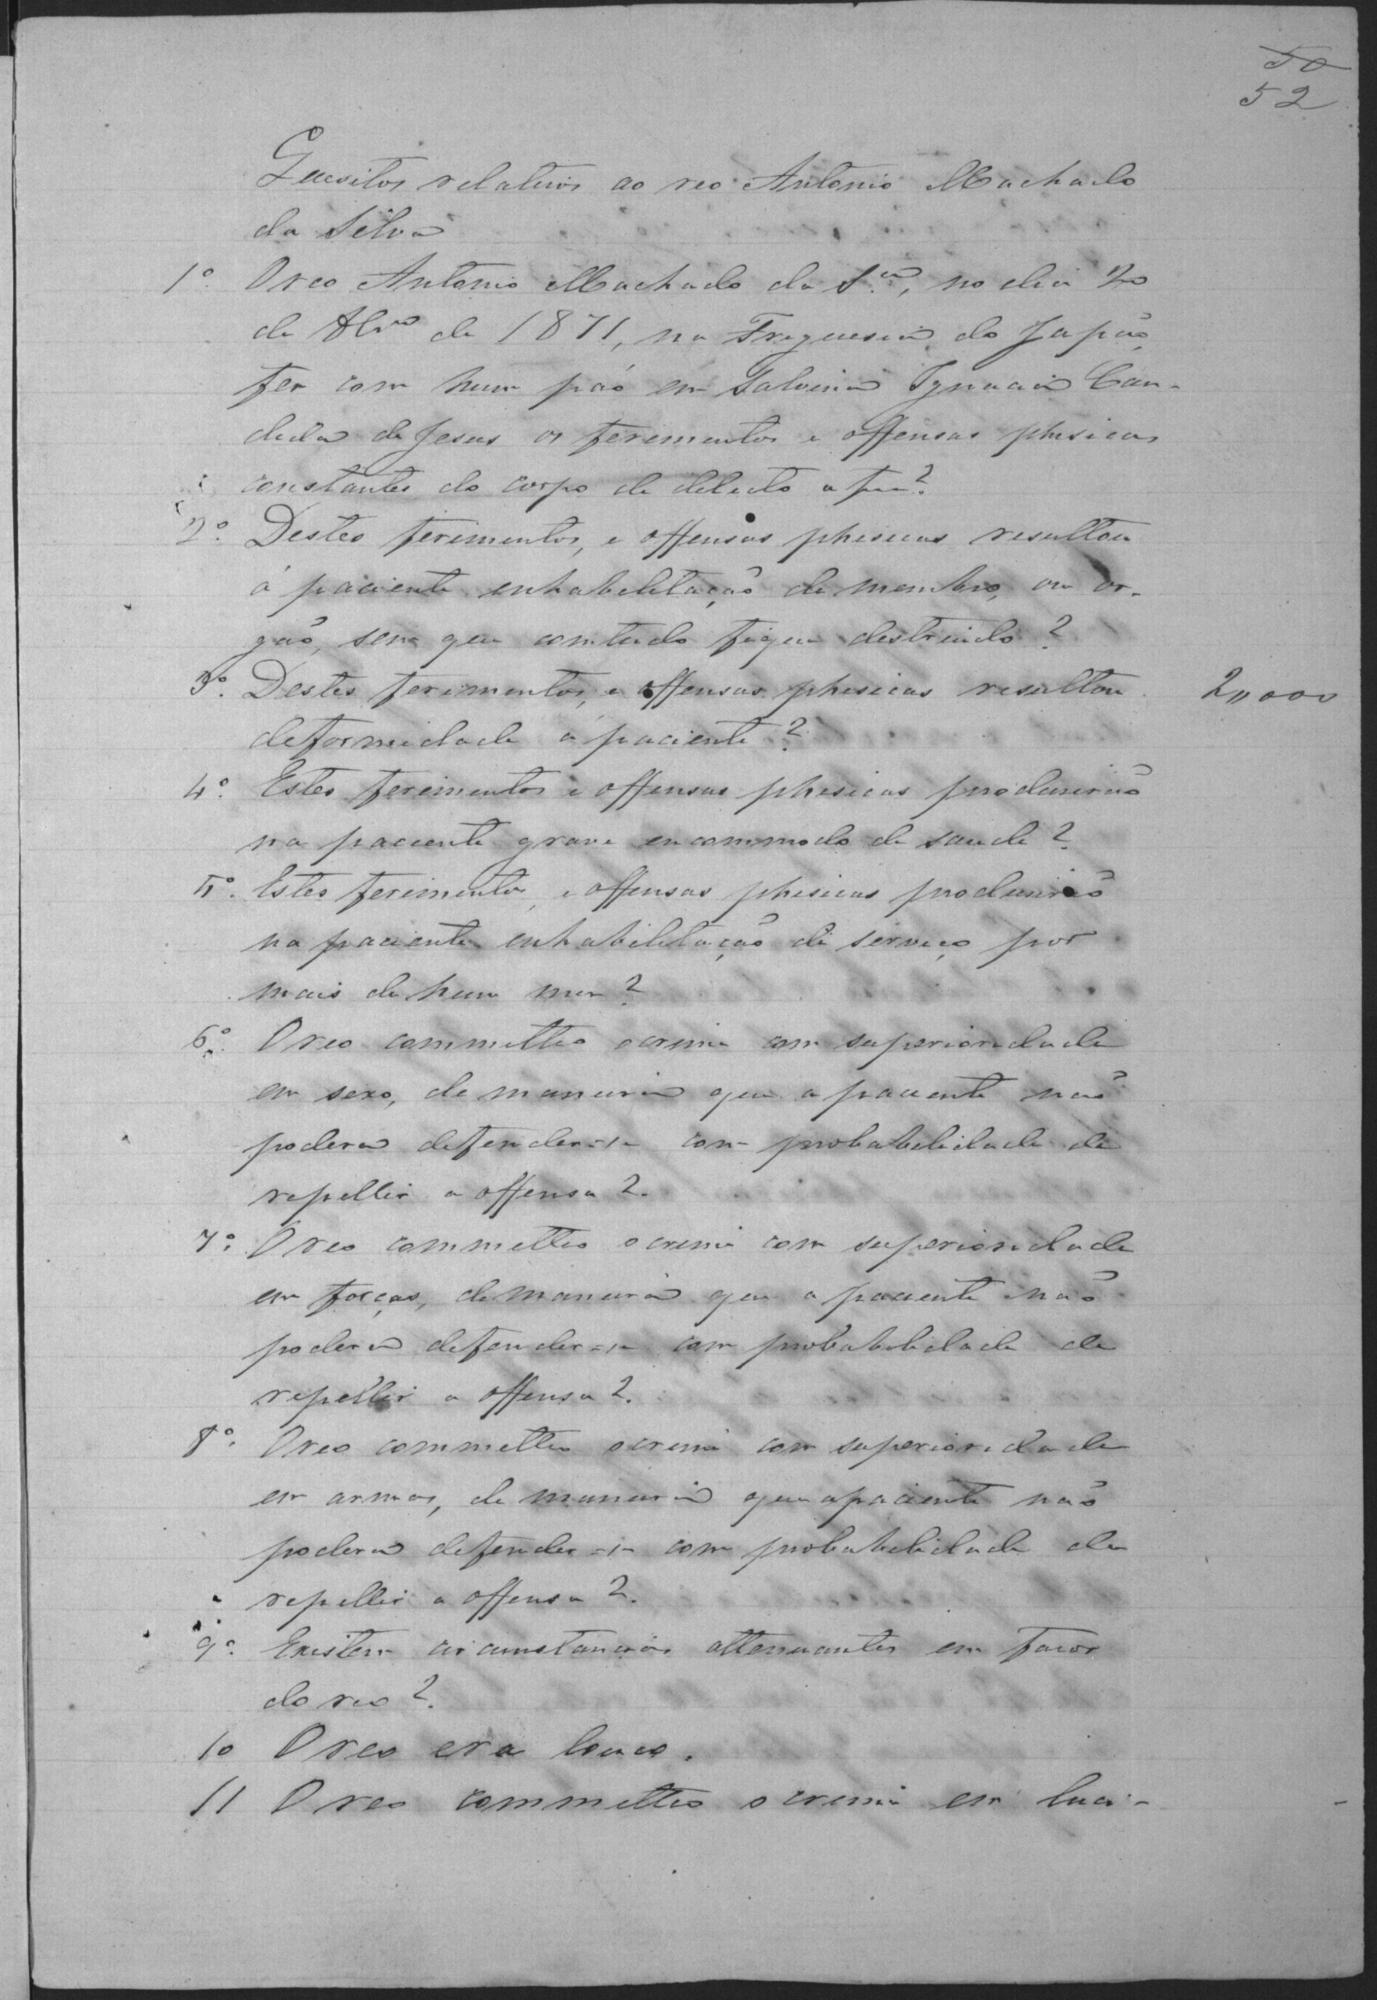 50
52
Quesitos relativos ao reo Antonio Machado
da Silva
1º. O reo Antonio Machado da Sª, no dia 20
de de 1871, na Freguesia do Japão,
fez com hum páo em Galvina Ignacia Can-
dida de Jesus os ferimentos e offensas phisicas
constantes do corpo de delicto a f?
2º. Destes ferimentos, e offensas phisicas resultou
á paciente enhabelitação de membro, ou or-
gão, sem que comtudo fique destruido?
3º. Destes ferimentos, e offensas phesicas resultou
deformidade á paciente?
2,,000
4º. Estes ferimentos e offensas phesicas produsirão
na paciente grave encommodo de saude?
5º. Estes ferimentos, e offensas phisicas produsirão
na paciente enhabilitação de serviço por
mais de hum mez?
6º. O reo commetteo o crime com superioridade
em sexo, de maneira que a paciente não
podera defender-se com probabelidade de
repellir a offensa?
7º. O reo commetteo o crime com superioridade
em forças, de maneira que a paciente não
podera defender-se com probabelidade de
repellir a offensa?
8º. O reo commetteo o crime com superioridade
em armas, de maneira que a paciente não
podera defender-se com probabelidade de
repellir a offensa?
9º. Existem circumstancias attenuantes em favor
do reo?
10 O reo era louco.
11 O reo commetteo o crime em luci-